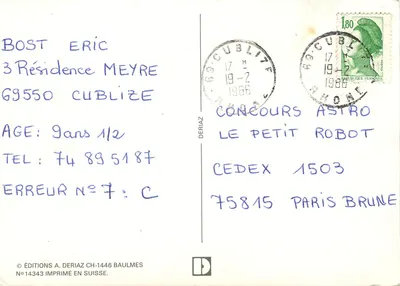 BOST ERIC
3 Résidence MEYRE
69550 CUBLIZE
AGE: 9ans 1/2
TEL: 74 89 51 87
ERREUR N°7: C
© ÉDITIONS A. DERIAZ CH-1446 BAULMES
N° 14343 IMPRIMÉ EN SUISSE.
DERIAZ
69-CUBLIZE
19-2
1986
RHONE
69-CUBLIZE
19-2
1986
RHONE
1,80
CONCOURS ASTRO
LE PETIT ROBOT
CEDEX 1503
75815 PARIS BRUNE